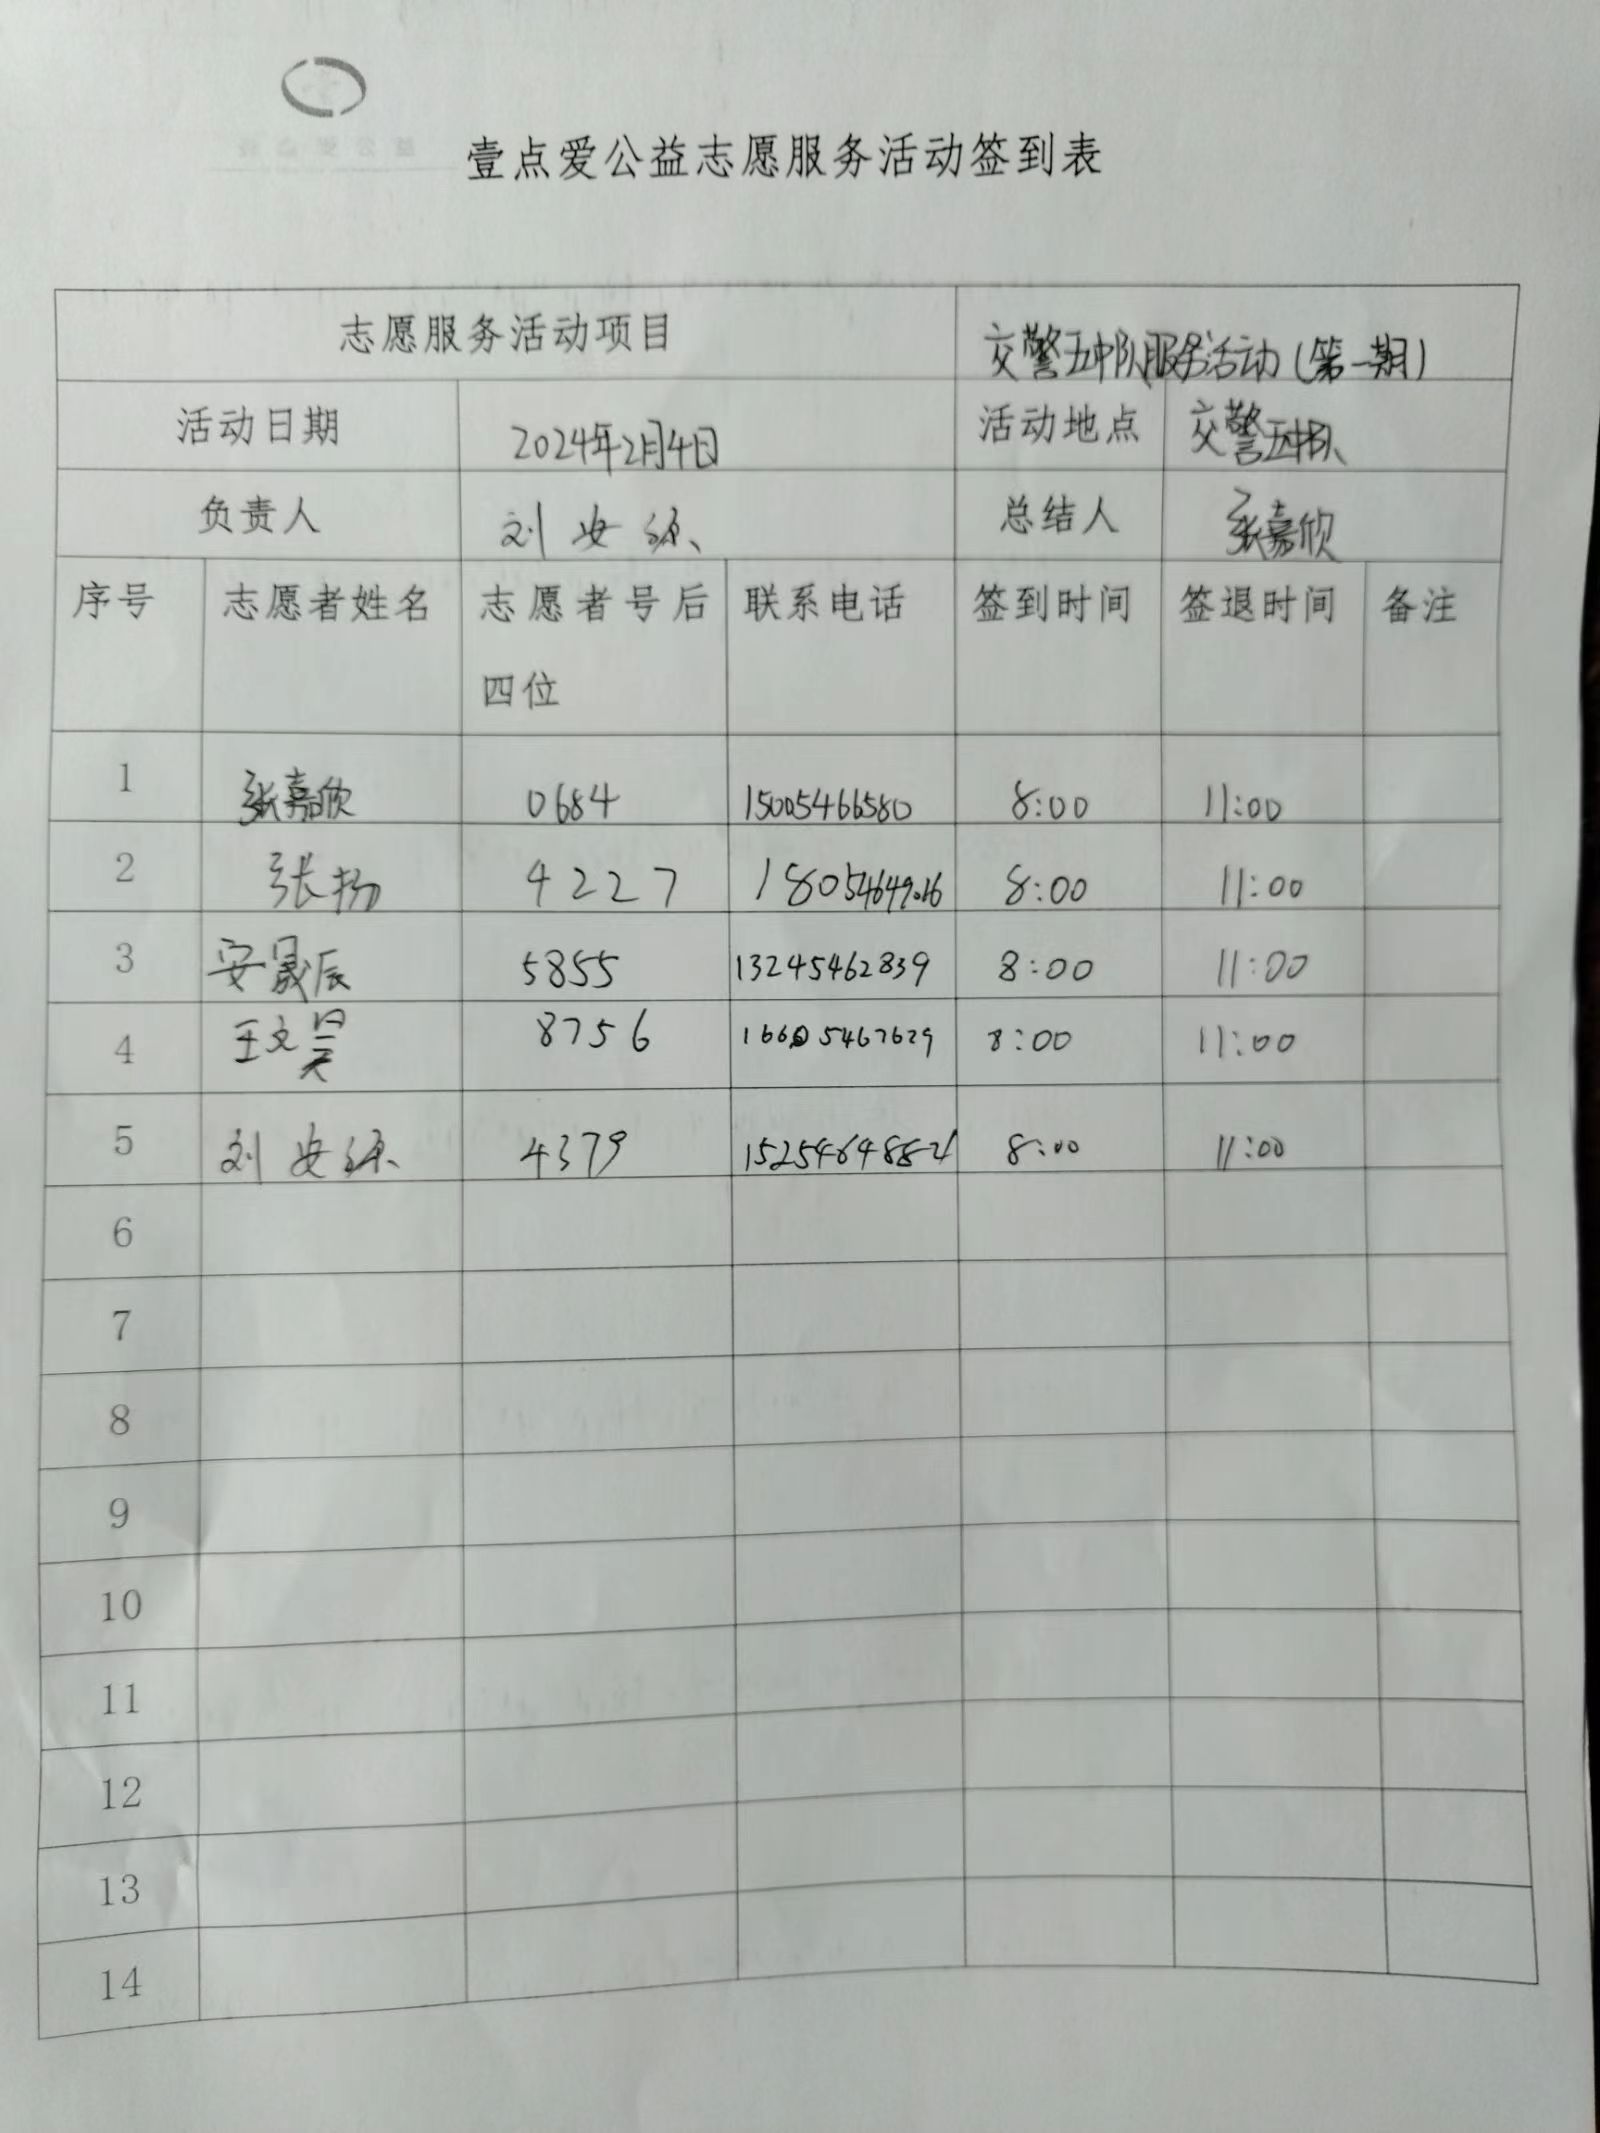 壹点爱公益志愿服务活动签到表
志愿服务活动项目 交警五中队服务活动(第一期)
活动日期 2024年2月4日 活动地点 交警五中队
负责人 刘安 总结人 张嘉欣
序号 志愿者姓名 志愿者号后 联系电话 签到时间 签退时间 备注
四位
1 张嘉欣 0684 15005466580 8:00 11:00
2 张扬 4227 8:00 11:00
3 安晟辰 5855 13245462839 8:00 11:00
4 王文昊 8756 16605467629 8:00 11:00
5 刘安 4379 8:00 11:00
6
7
8
9
10
11
12
13
14